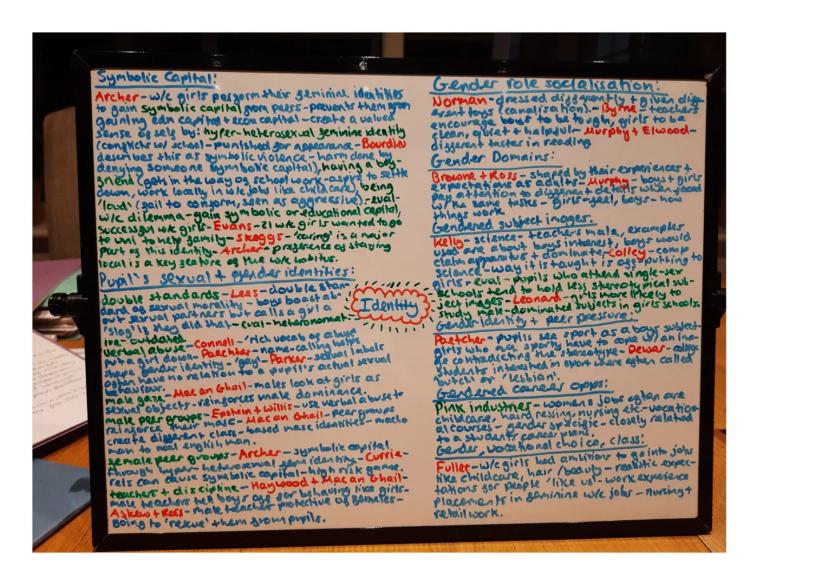 Symbolic Capital:
Archer - w/c girls perform their feminine identities
to gain symbolic capital from peers - prevents them from
gaining edn capital + econ capital - create a valued
sense of self by: hyper-heterosexual feminine identity
(conflicts w/ school - punished for appearance - Bourdieu
describes this as symbolic violence - harm done by
denying someone symbolic capital), having a boy-
friend (gets in the way of school work - aspire to settle
down, work locally in w/c jobs like childcare), being
'loud' (fail to conform, seen as aggressive). - eval-
w/c dilemma - gain symbolic or educational capital,
successful w/c girls - Evans - 21 w/c girls wanted to go
to uni to help family - Skeggs - 'caring' is a major
part of this identity - Archer - preference of staying
local is a key feature of the w/c habitus.
Pupil's sexual + gender identities:
double standards - Lees - double stan-
dard of sexual morality - boys boast ab-
out sexual partners but calls a girl a
'slag' if they did that - eval - heteronormat-
ive - outdated
verbal abuse - Connell - rich vocab of abuse
put girls down - Paechter - name-calling helps
shape gender identity + power - Parker - sexual labels
often have no relation to a pupil's actual sexual
behaviour.
male gaze - Mac an Ghail - males look at girls as
sexual objects - reinforces male dominance.
male peer groups - Epstein + Willis - use verbal abuse to
reinforce their masc - Mac an Ghail - peer groups
create different class-based masc identities - macho
men to real english men.
female peer groups - Archer - symbolic capital
through hyper-heterosexual fem identity - Currie -
rels can cause symbolic capital - high risk game.
teachers + discipline - Haywood + Mac an Ghail -
male teachers tell boys off for behaving like girls -
Askew + Ross - male teacher protective of females -
going to 'rescue' them from pupils.
Identity
Gender role socialisation:
Norman - dressed differently + given diff-
erent toys (canalisation) - Byrne - teachers
encourage boys to be tough, girls to be
clean, quiet + helpful - Murphy + Elwood -
different tastes in reading.
Gender Domains:
Browne + Ross - shaped by their experiences +
expectations of adults - Murphy - boys + girls
pay attention to different details when faced
w/ the same tasks - girls - feel, boys - how
things work.
Gendered subject images:
Kelly - science teachers male, examples
used are about boys interest, boys would
claim apparatus + dominate - Colley - comp
science - way it is taught is off putting to
girls - eval - pupils who attend single-sex
schools tend to hold less stereotypical sub-
ject images - Leonard - girls more likely to
study male-dominated subjects in girls schools.
Gender identity + peer pressure:
Paetcher - pupils see sport as a boys subject -
girls who are sporty have to cope w/ an ima-
ge contradicting the stereotype - Dewar - college
students interested in sport were often called
'butch' or 'lesbian'.
Gendered career opps:
Pink industries - womens jobs often are
childcare, hairdressing, nursing etc. - vocation-
al courses - gender specific - closely related
to a students career plan.
Gender, vocational choice, class:
Fuller - w/c girls had ambitions to go into jobs
like childcare, hair/beauty - realistic expec-
tations for people 'like us' - work experience
placements in feminine w/c jobs - nursing +
retail work.